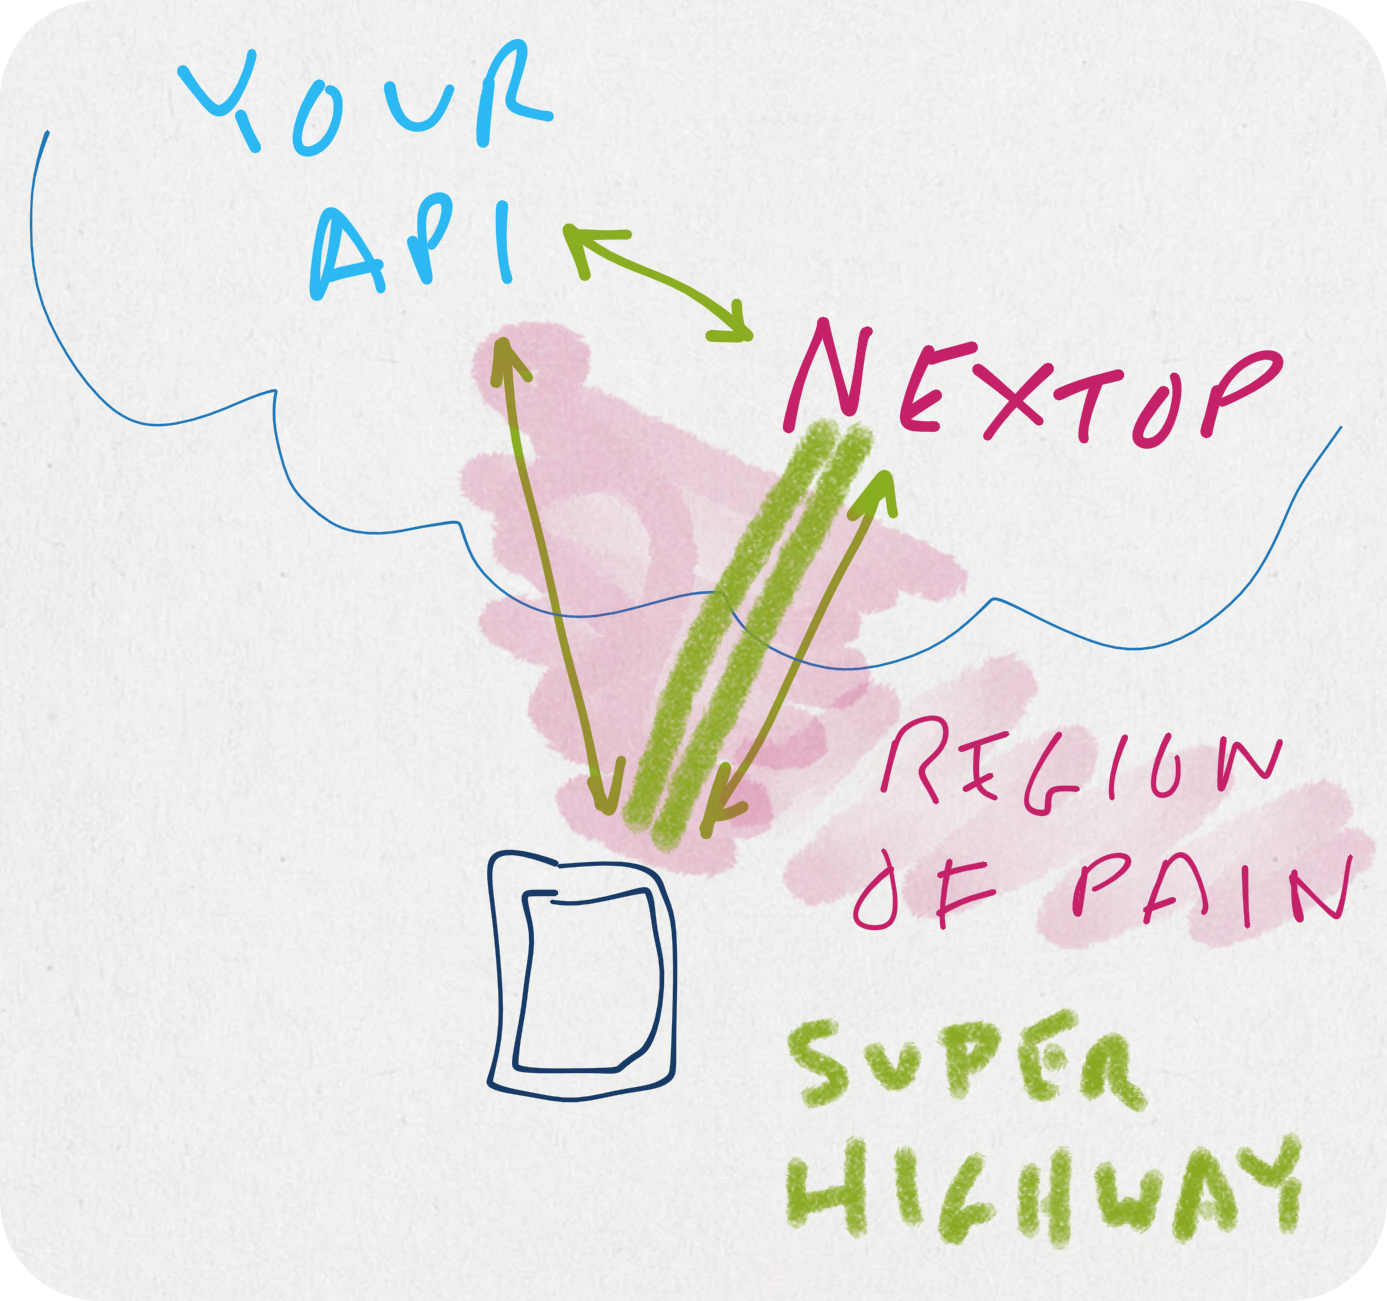 YOUR
API
NEXTOP
REGION
OF PAIN
SUPER
HIGHWAY